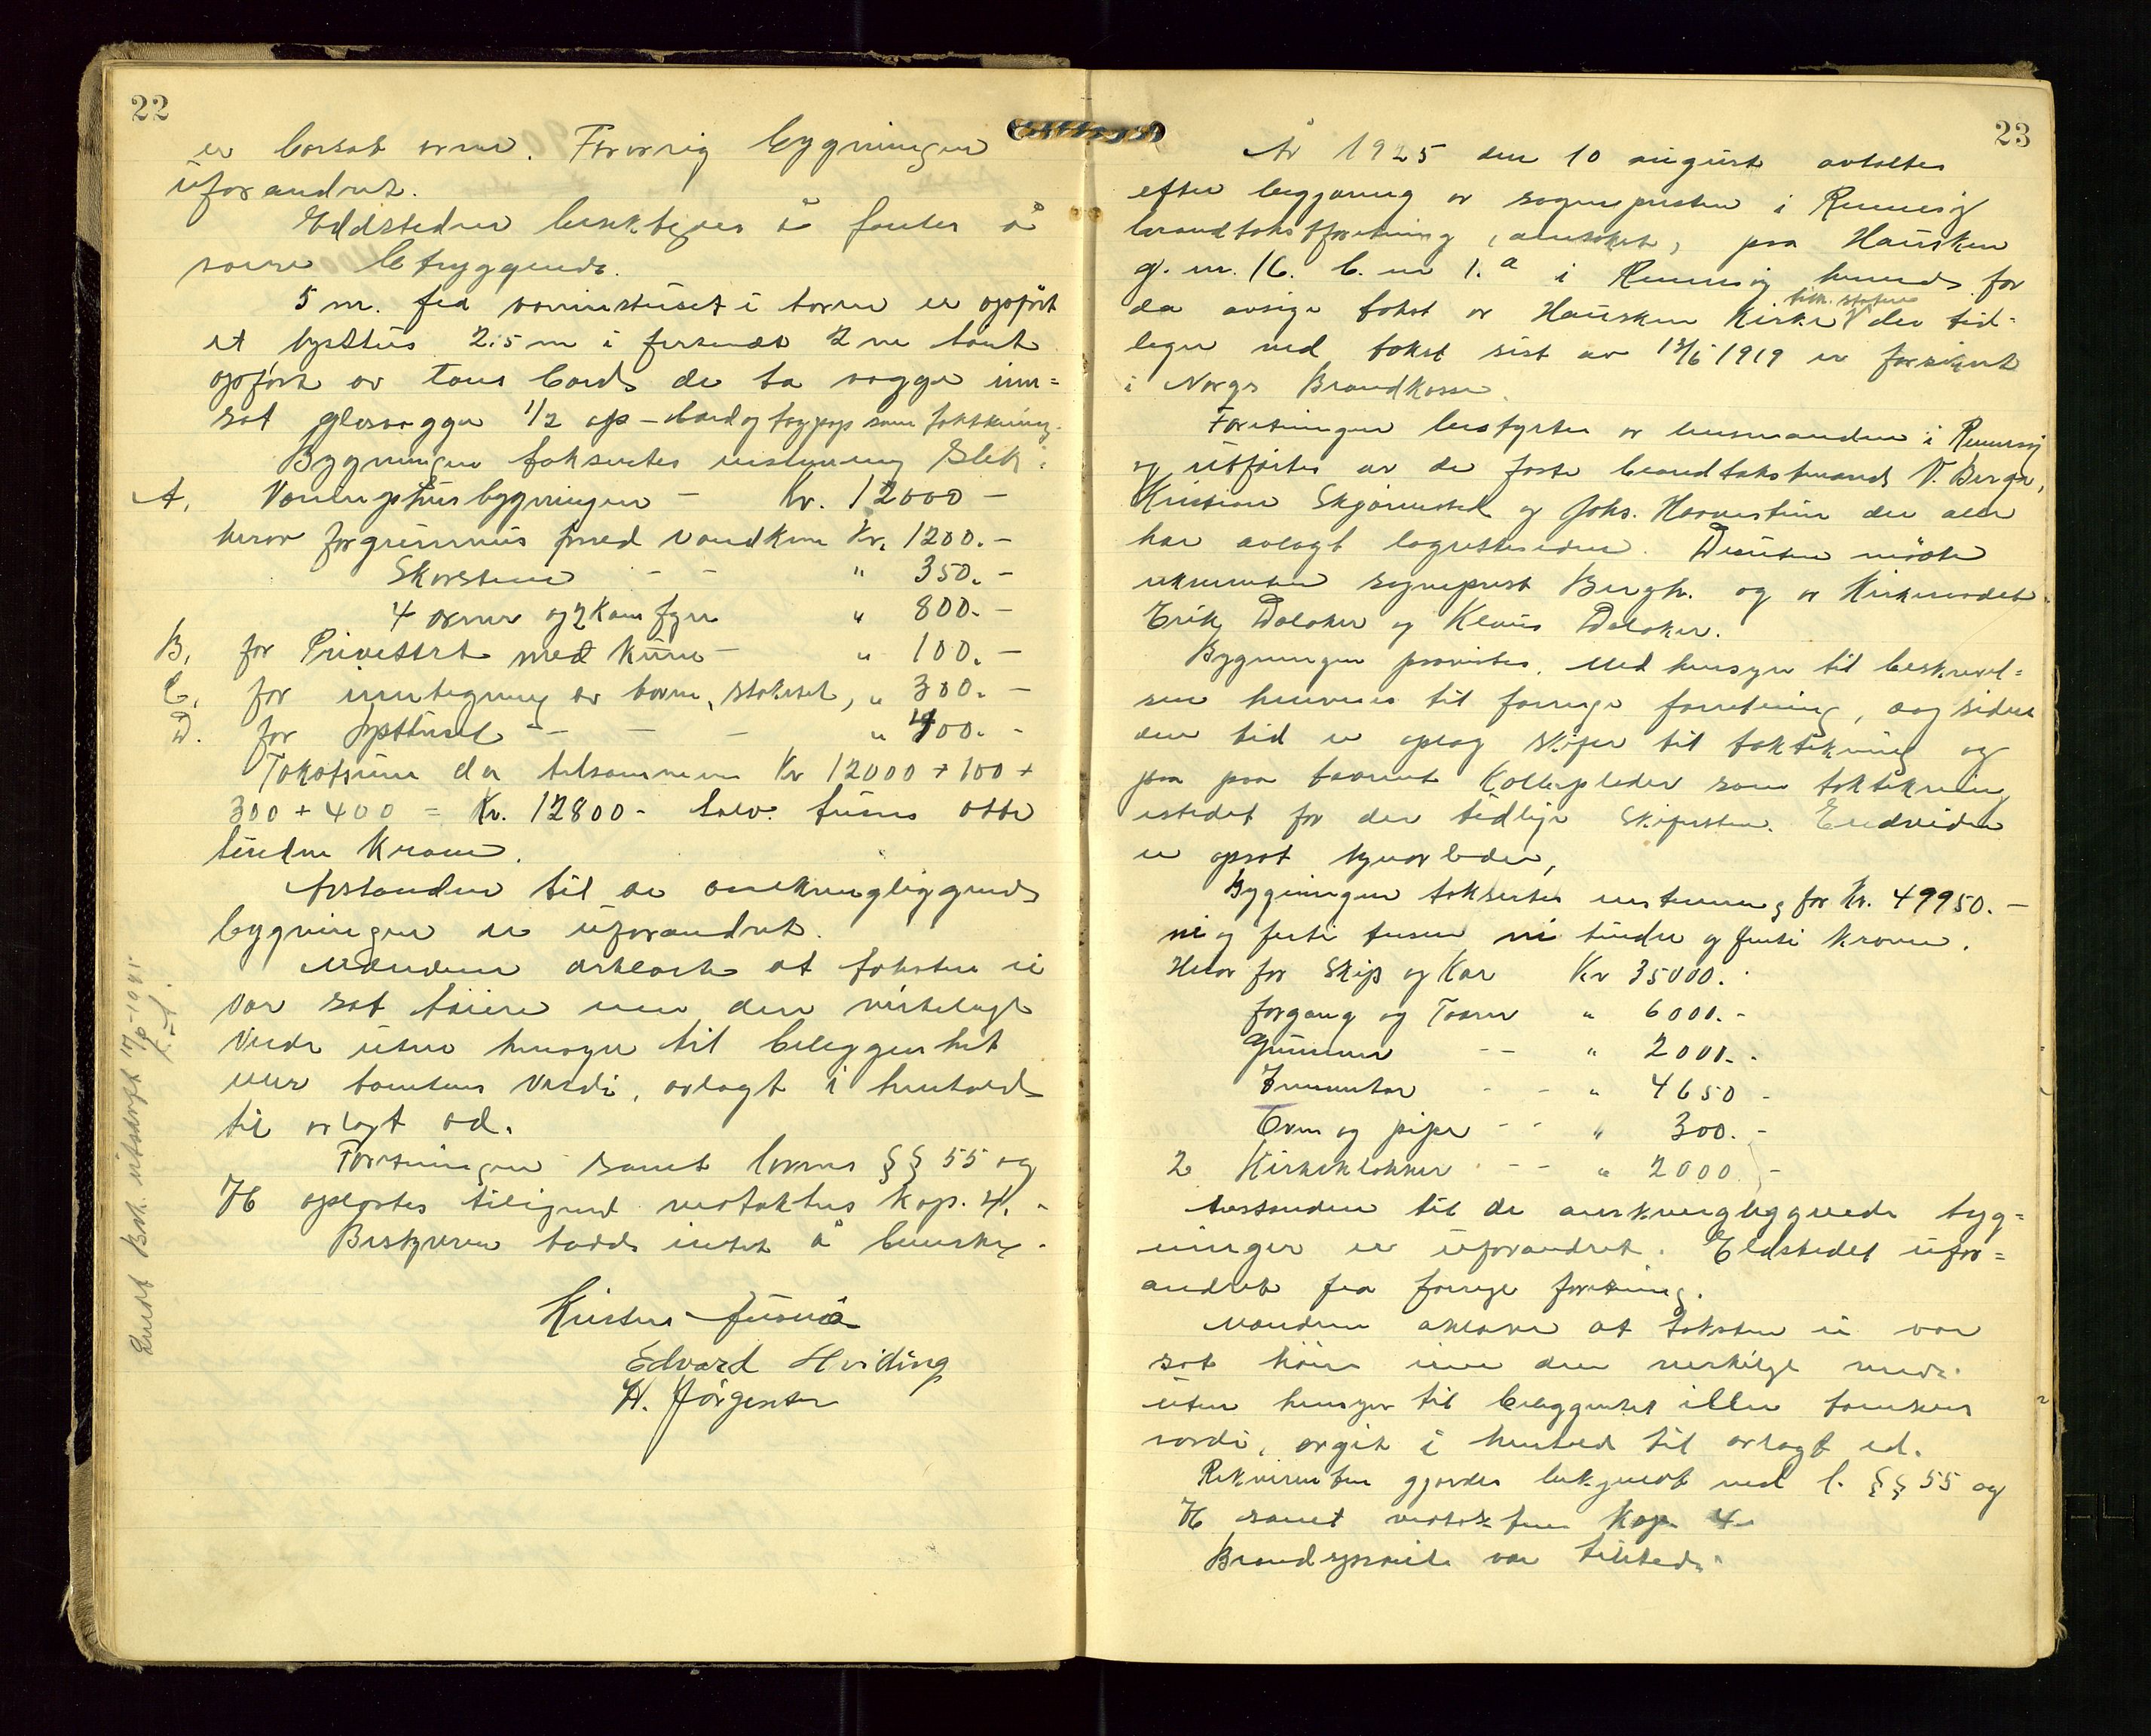 22
er borsat ovne. Forøvrig bygningen
uforandret.
Ildstedene besiktiges å fantes å
være betryggende.
5 m. fra våningshuset i havne er opført
et lysthus 2.5 m i firkant 2 m høit
opført av bord de to vægge inn=
sat glasvægge 1/2 op - bord og tagpap som taktekning.
Bygningene taksertes enstemmig slik:
A. Vaaningshusbygningen - Kr. 12000 -
herav for grunnmur med vandkum Kr. 1200.-
Skorstene - - " 350.-
4 ovner og 2 Komfyre " 800.-
B. for Privetsret med Kum - " 100.-
C. for inntegning av havne, stakitet, " 300.-
D. for lysthuset - - - " 400.-
Takstsum dør tilsammen Kr 12000 + 100 +
300 + 400 = Kr. 12800 - tolv tusen otte
hundre Kroner.
Avstanden til de omkringliggende
bygninger er uforandret.
Mændene erklærte at taksten ei
var sat høiere enn den virkelige
Verdi uten hensyn til beliggenhet
eller tomtens Verdi, avlagt i henhold
til avlagt ed.
Forretningen samt lovens §§ 55 og
76 oplæstes tillikemed vedtektens kap. 4. -
Bestyreren hadde intet å bemerke.
Edvard Hviding
W. Jörgensen
Sendt Brk. utskrift 17/8-1925
23
År 1925 den 10 august avholdtes
efter begjæring av sognepresten i Rennesøy
brandtakstforretning, paa Hausken
g. nr. 16. b. nr 1.a i Rennesøy herred for
da avsige takst av Hausken Kirke tilh. staten der tid=
ligere ved takst sist av 13/6 1919 er forsikret
i Norges Brandkasse.
Forretningen bestyrtes av lensmanden i Rennesøy
og utførtes av de faste brandtakstmænd V. Berge,
Kristian og Johs. der alle
har avlagt lagretteseden. Desuten møtte
rekvirenten sogneprest Bergh. og av Kirkeverdet
Erik Dalaker og Klaus Dalaker.
Bygningen prøvedes. Med hensyn til beskrivel=
sen henvises til forrige forretning, dog siden
den tid er oplag skifer til taktekning og
paa paa taarnet Kobberplader som taktekning
istedet for den tidligere Skifersten. Endvidere
er opsat lynavleder,
Bygningen taksertes enstemmig for Kr. 49950. -
ni og førti tusen ni hundre og femti kroner.
Herav for Skip og Kor Kr 35000. -
forgang og Taarn " 6000. -
Grunnmur - - " 2000. -
Inventar - - " 4650 -
Ovn og pipe - - " 300. -
2 Kirkeklokker - - " 2000 -
Avstanden til de omkringliggende byg=
ninger er uforandret. Eldstedet ufor=
andret fra forrige forretning.
Mændene erklærer at taksten ei var
sat høiere enn den virkelige verdi
uten hensyn til beliggenhet eller tomtens
værdi, avgit i henhold til avlagt ed.
Rekvirenten gjordes bekjendt med l. §§ 55 og
76 samt vedtektens Kap 4
Brandsprøite var tilstede.